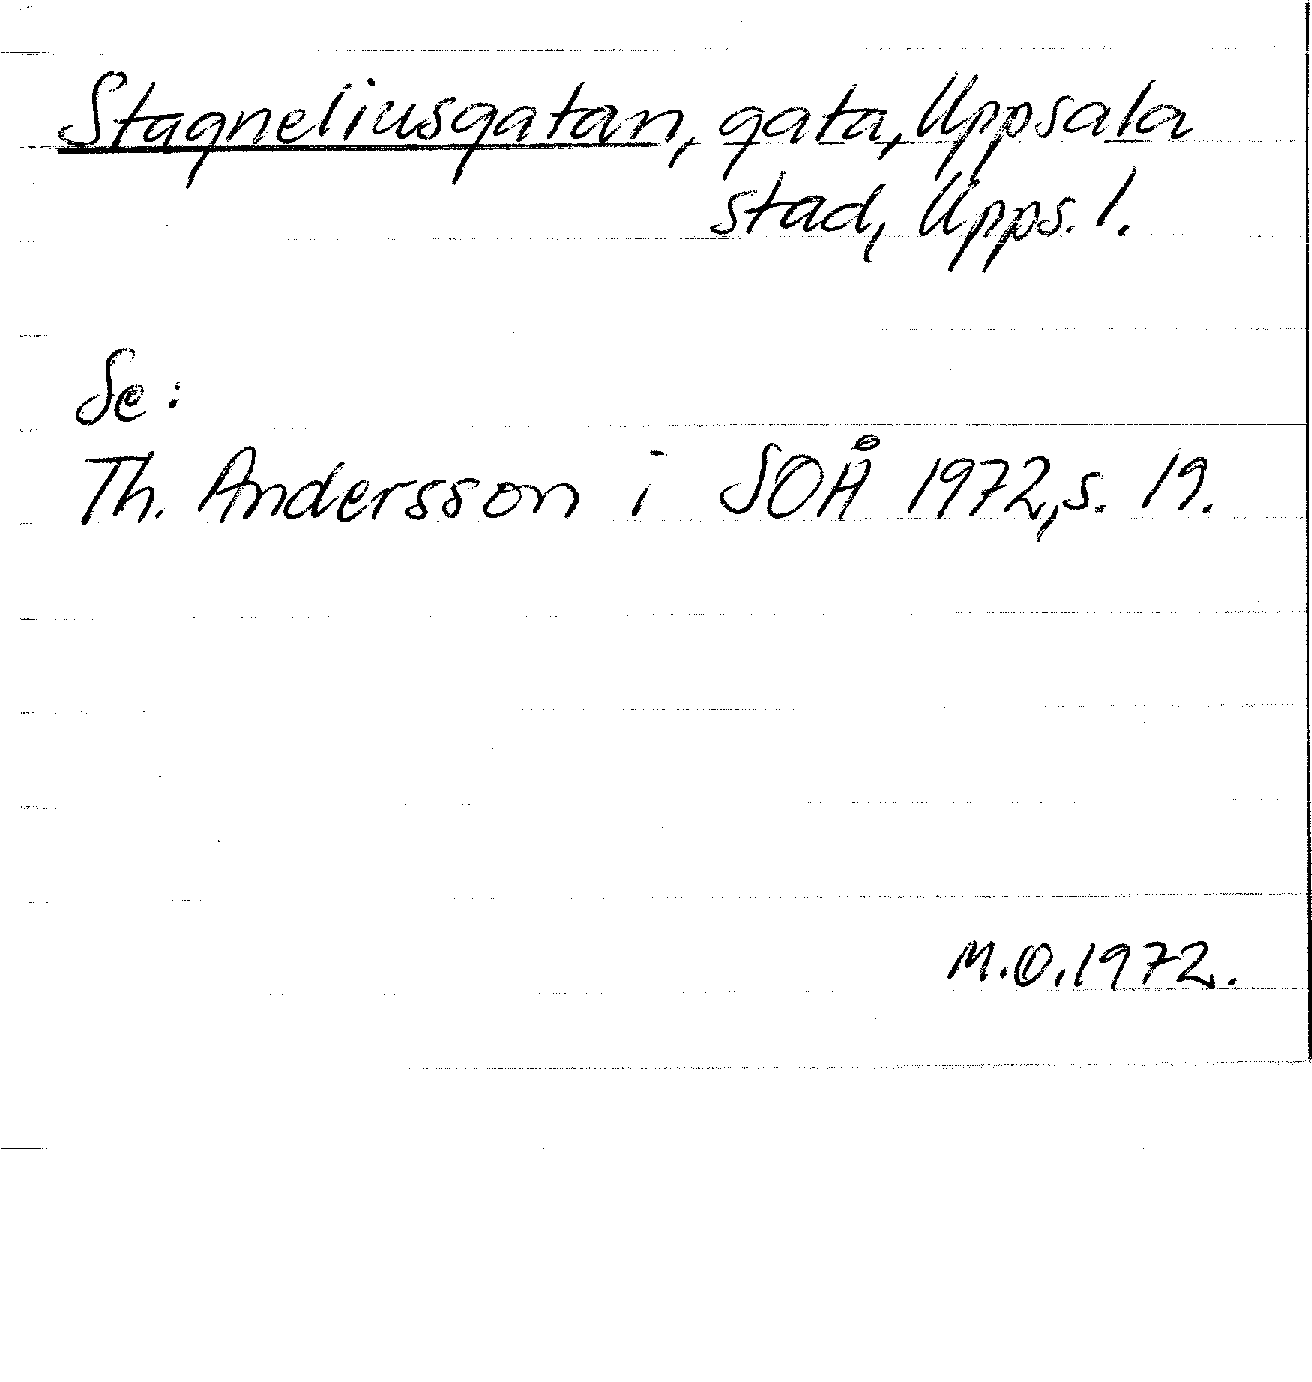 Stagneliusgatan, gata, Uppsala
stad, Upps. l.
Se:
Th. Andersson i SOÅ 1972, s. 19.
M.O. 1972.